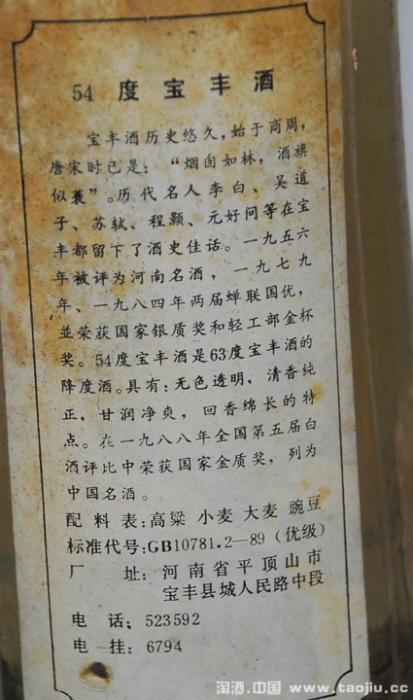 54 度宝丰酒
宝丰酒历史悠久，始于商周，
唐宋时已是：“烟囱如林，酒旗
似蓑”。历代名人李白、吴道
子、苏轼、程颢、元好问等在宝
丰都留下了酒史佳话。一九五六
年被评为河南名酒，一九七九
年、一九八四年两届蝉联国优，
並荣获国家银质奖和轻工部金杯
奖。54度宝丰酒是63度宝丰酒的
降度酒。具有：无色透明，清香纯
正，甘润净爽，回香绵长的特
点。在一九八八年全国第五届白
酒评比中荣获国家金质奖，列为
中国名酒。
配料表:高粱 小麦 大麦 豌豆
标准代号:GB10781.2—89（优级）
厂 址：河南省平顶山市
宝丰县城人民路中段
电 话：523592
电 挂：6794
淘酒.中国 www.taojiu.cc